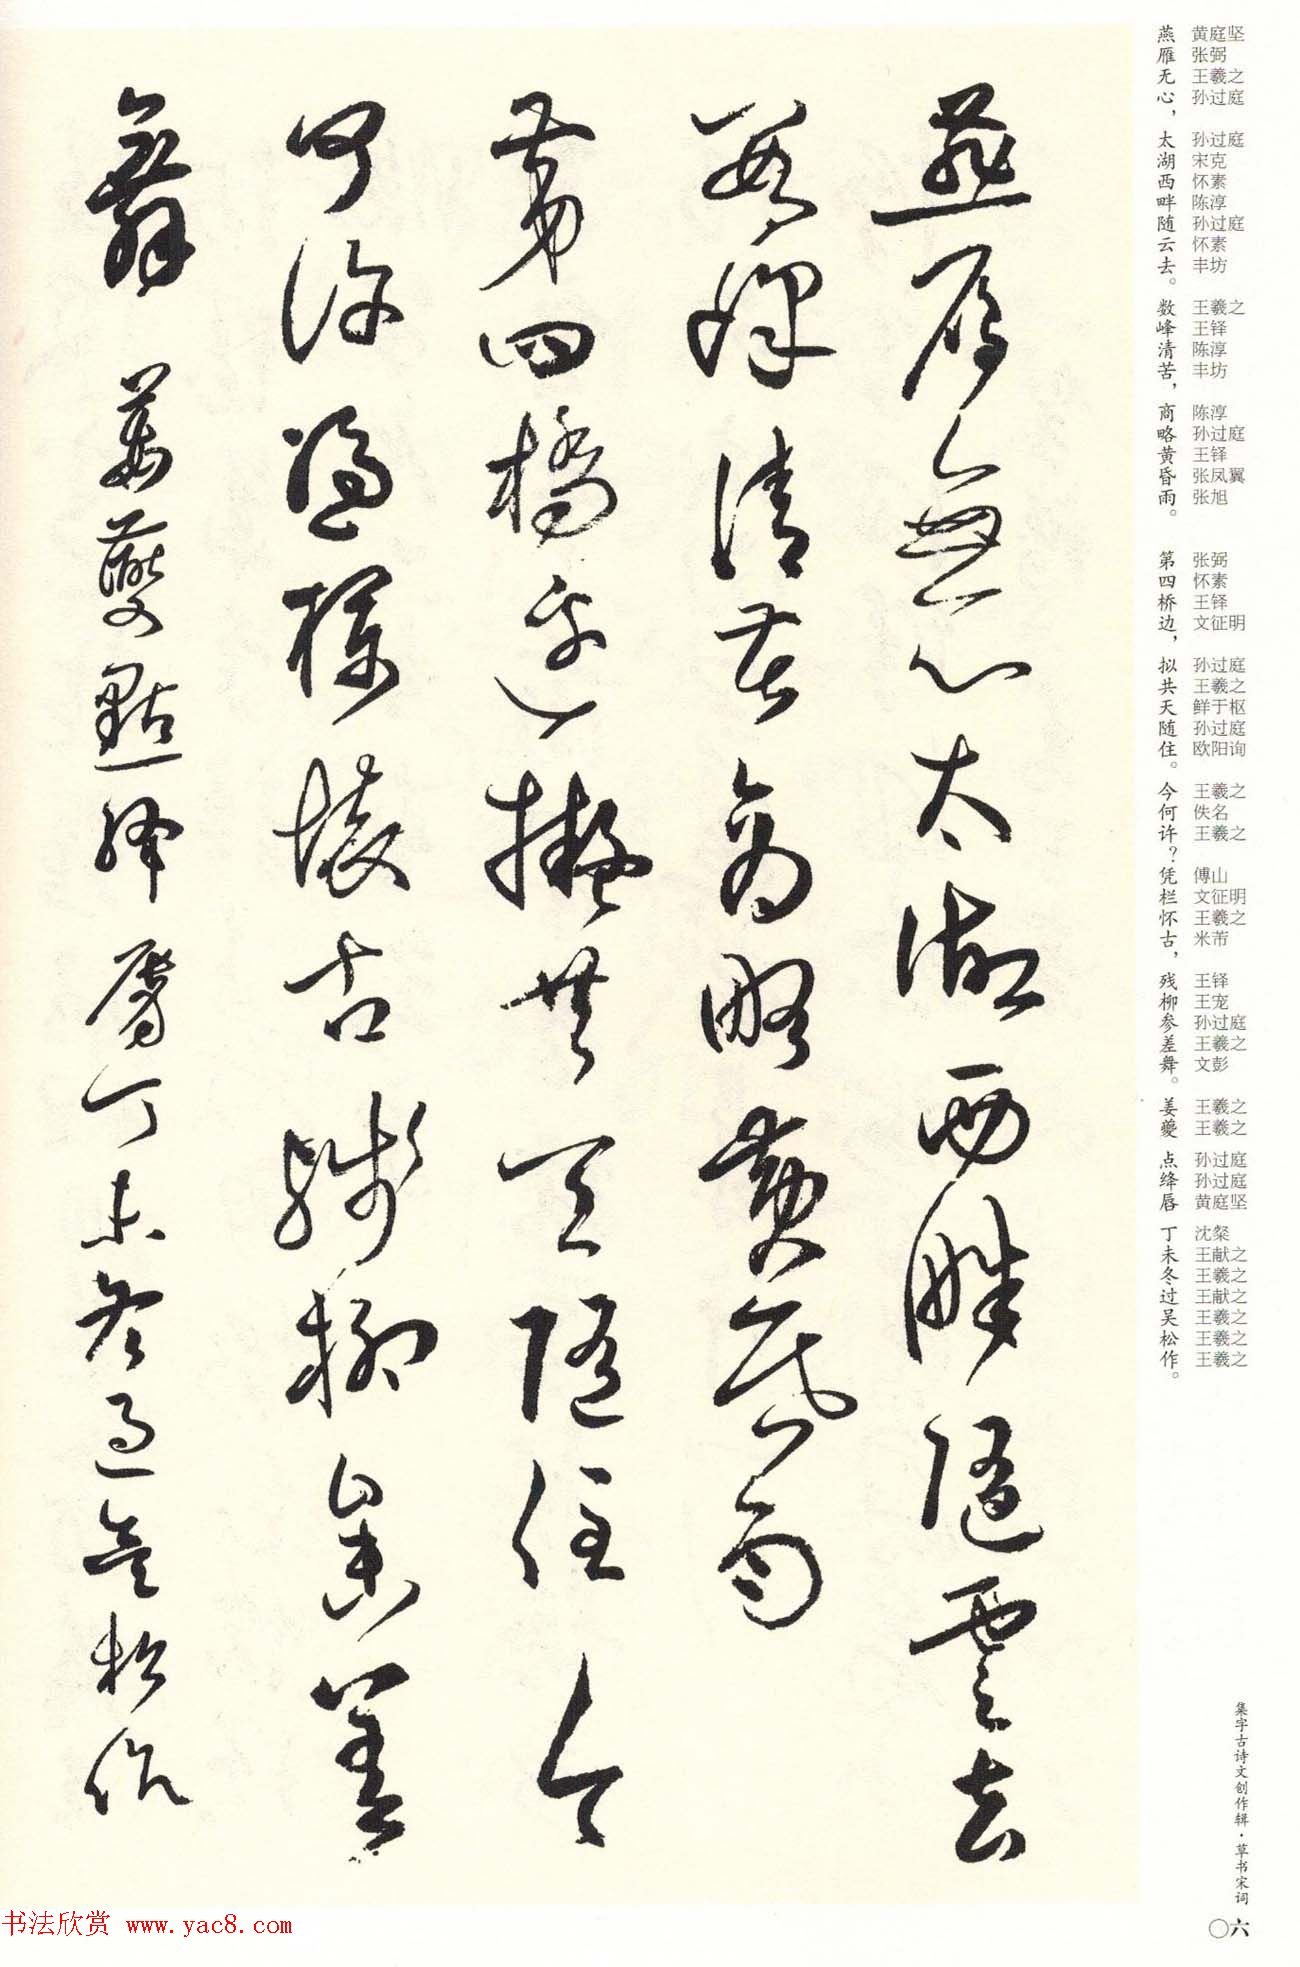 燕雁无心，太湖西畔随云去。数峰清苦，商略黄昏雨。 第四桥边，拟共天随住。今何许？凭栏怀古，残柳参差舞。 姜夔 点绛唇 丁未冬过吴松作。
黄庭坚 张弼 王羲之 孙过庭 孙过庭 宋克 怀素 陈淳 孙过庭 怀素 丰坊 王羲之 王铎 陈淳 丰坊 陈淳 孙过庭 王铎 张凤翼 张旭 张弼 怀素 王铎 文征明 孙过庭 王羲之 鲜于枢 孙过庭 欧阳询 王羲之 佚名 王羲之 傅山 文征明 王羲之 米芾 王铎 王宠 孙过庭 王羲之 文彭 王羲之 王羲之 孙过庭 孙过庭 黄庭坚 沈粲 王献之 王羲之 王献之 王羲之 王羲之 王羲之
燕雁無心太湖西畔隨雲去
數峰清苦商略黃昏雨
第四橋邊擬共天隨住今
何許憑欄懷古殘柳參差
舞 姜夔點絳唇丁未冬過吳松作
集字古诗文创作辑·草书宋词
〇六
书法欣赏 www.yac8.com